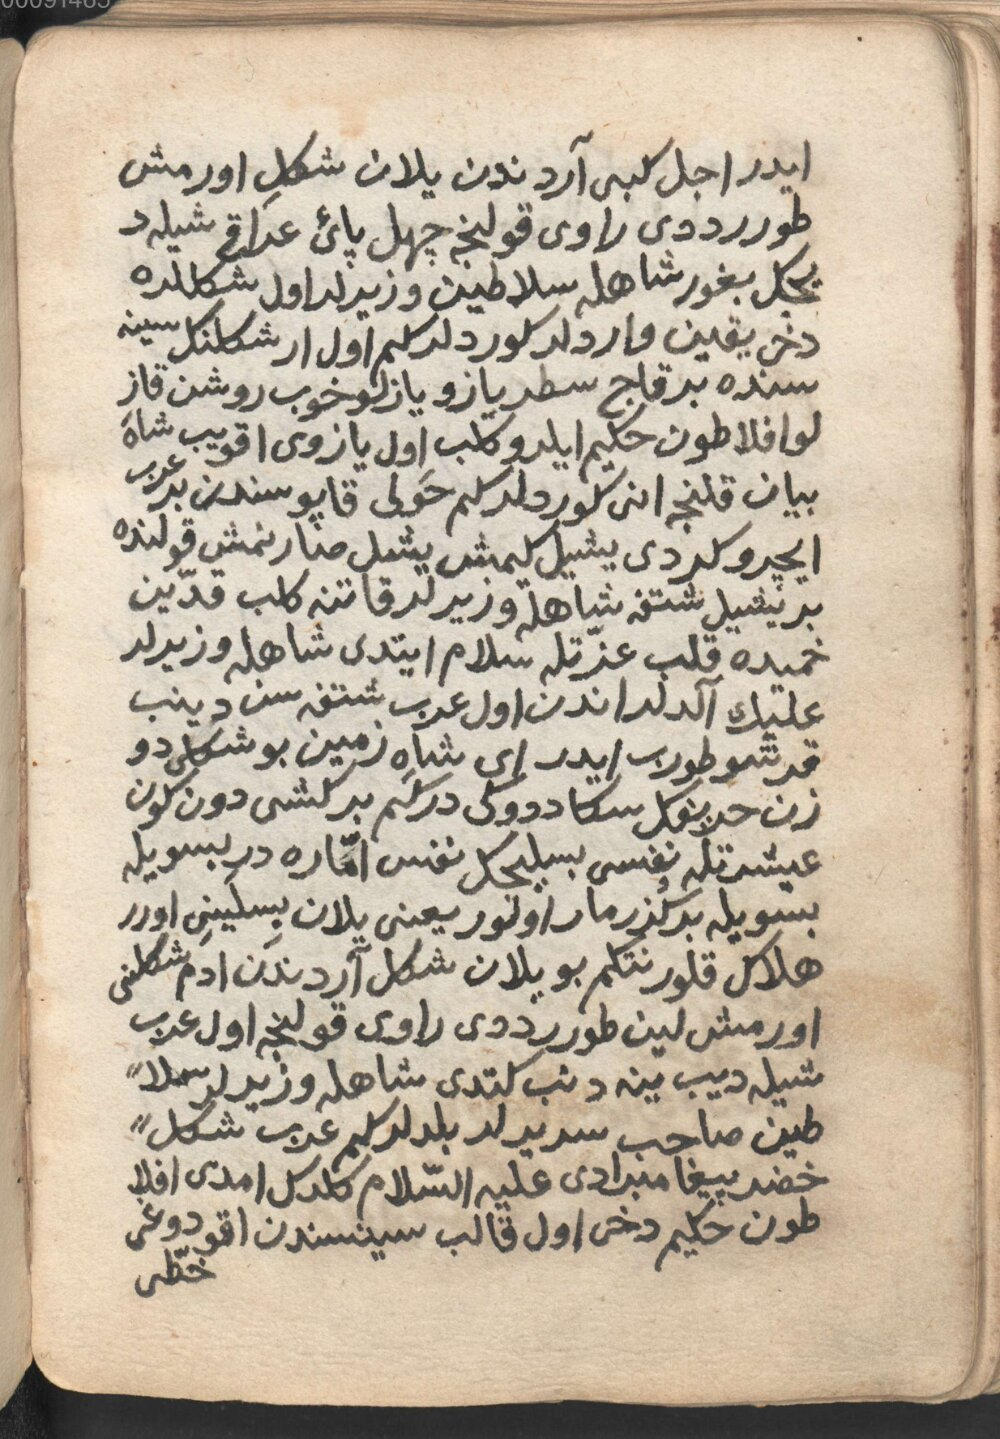 00091465
ايدر اجل كبى آردندن يلان شكل اورمش
طورر ددى راوى قولنجه چهل پائ عراق شيله د
يجكل بغور شاهله سلاطين وزيرلر اول شكللره
دخى يقين واردلر كوردلركم اول ار شكلنك سينه
سنده بر قاچ سطر يازو يازلو خوب روشن قاز
لو افلاطون حكيم ايلرو كلب اول يازوى اقويب شاه
بيان قلنجه انى كوردلركم حولى قاپوسندن بر عرب
ايچرو كردى يشيل كيمش يشل صنارنمش قولنده
بر يشيل شتفه شاهله وزيرلر قاتنه كلب قدّين
خميده قلب عزّتله سلام ايتدى شاهله وزيرلر
عليك آلدلر اندن اول عرب شتفه سن دينب
قرشو طورب ايدر اى شاه زمين بو شكلى دو
زن حريفكل سكا ددوكى دركم بر كشى دون كون
عيشرتله نفسى بسليجكل نفس امّاره در بسويله
بسويله بر كزرمار اولور يعنى يلان بسلينى اورر
هلاكل قلور نتكم بو يلان شكل آردندن ادم شكلنى
اورمش لين طورر ددى راوى قولنجه اول عرب
شيله ديب ينه دنب كتدى شاهله وزيرلر سلا
طين صاحب سريرلر بلدلركم عرب شكل
خضر پيغامبرادى عليه السّلام كلدكل امدى افلا
طون حكيم دخى اول قالب سينسندن اقودوغى
خطّى